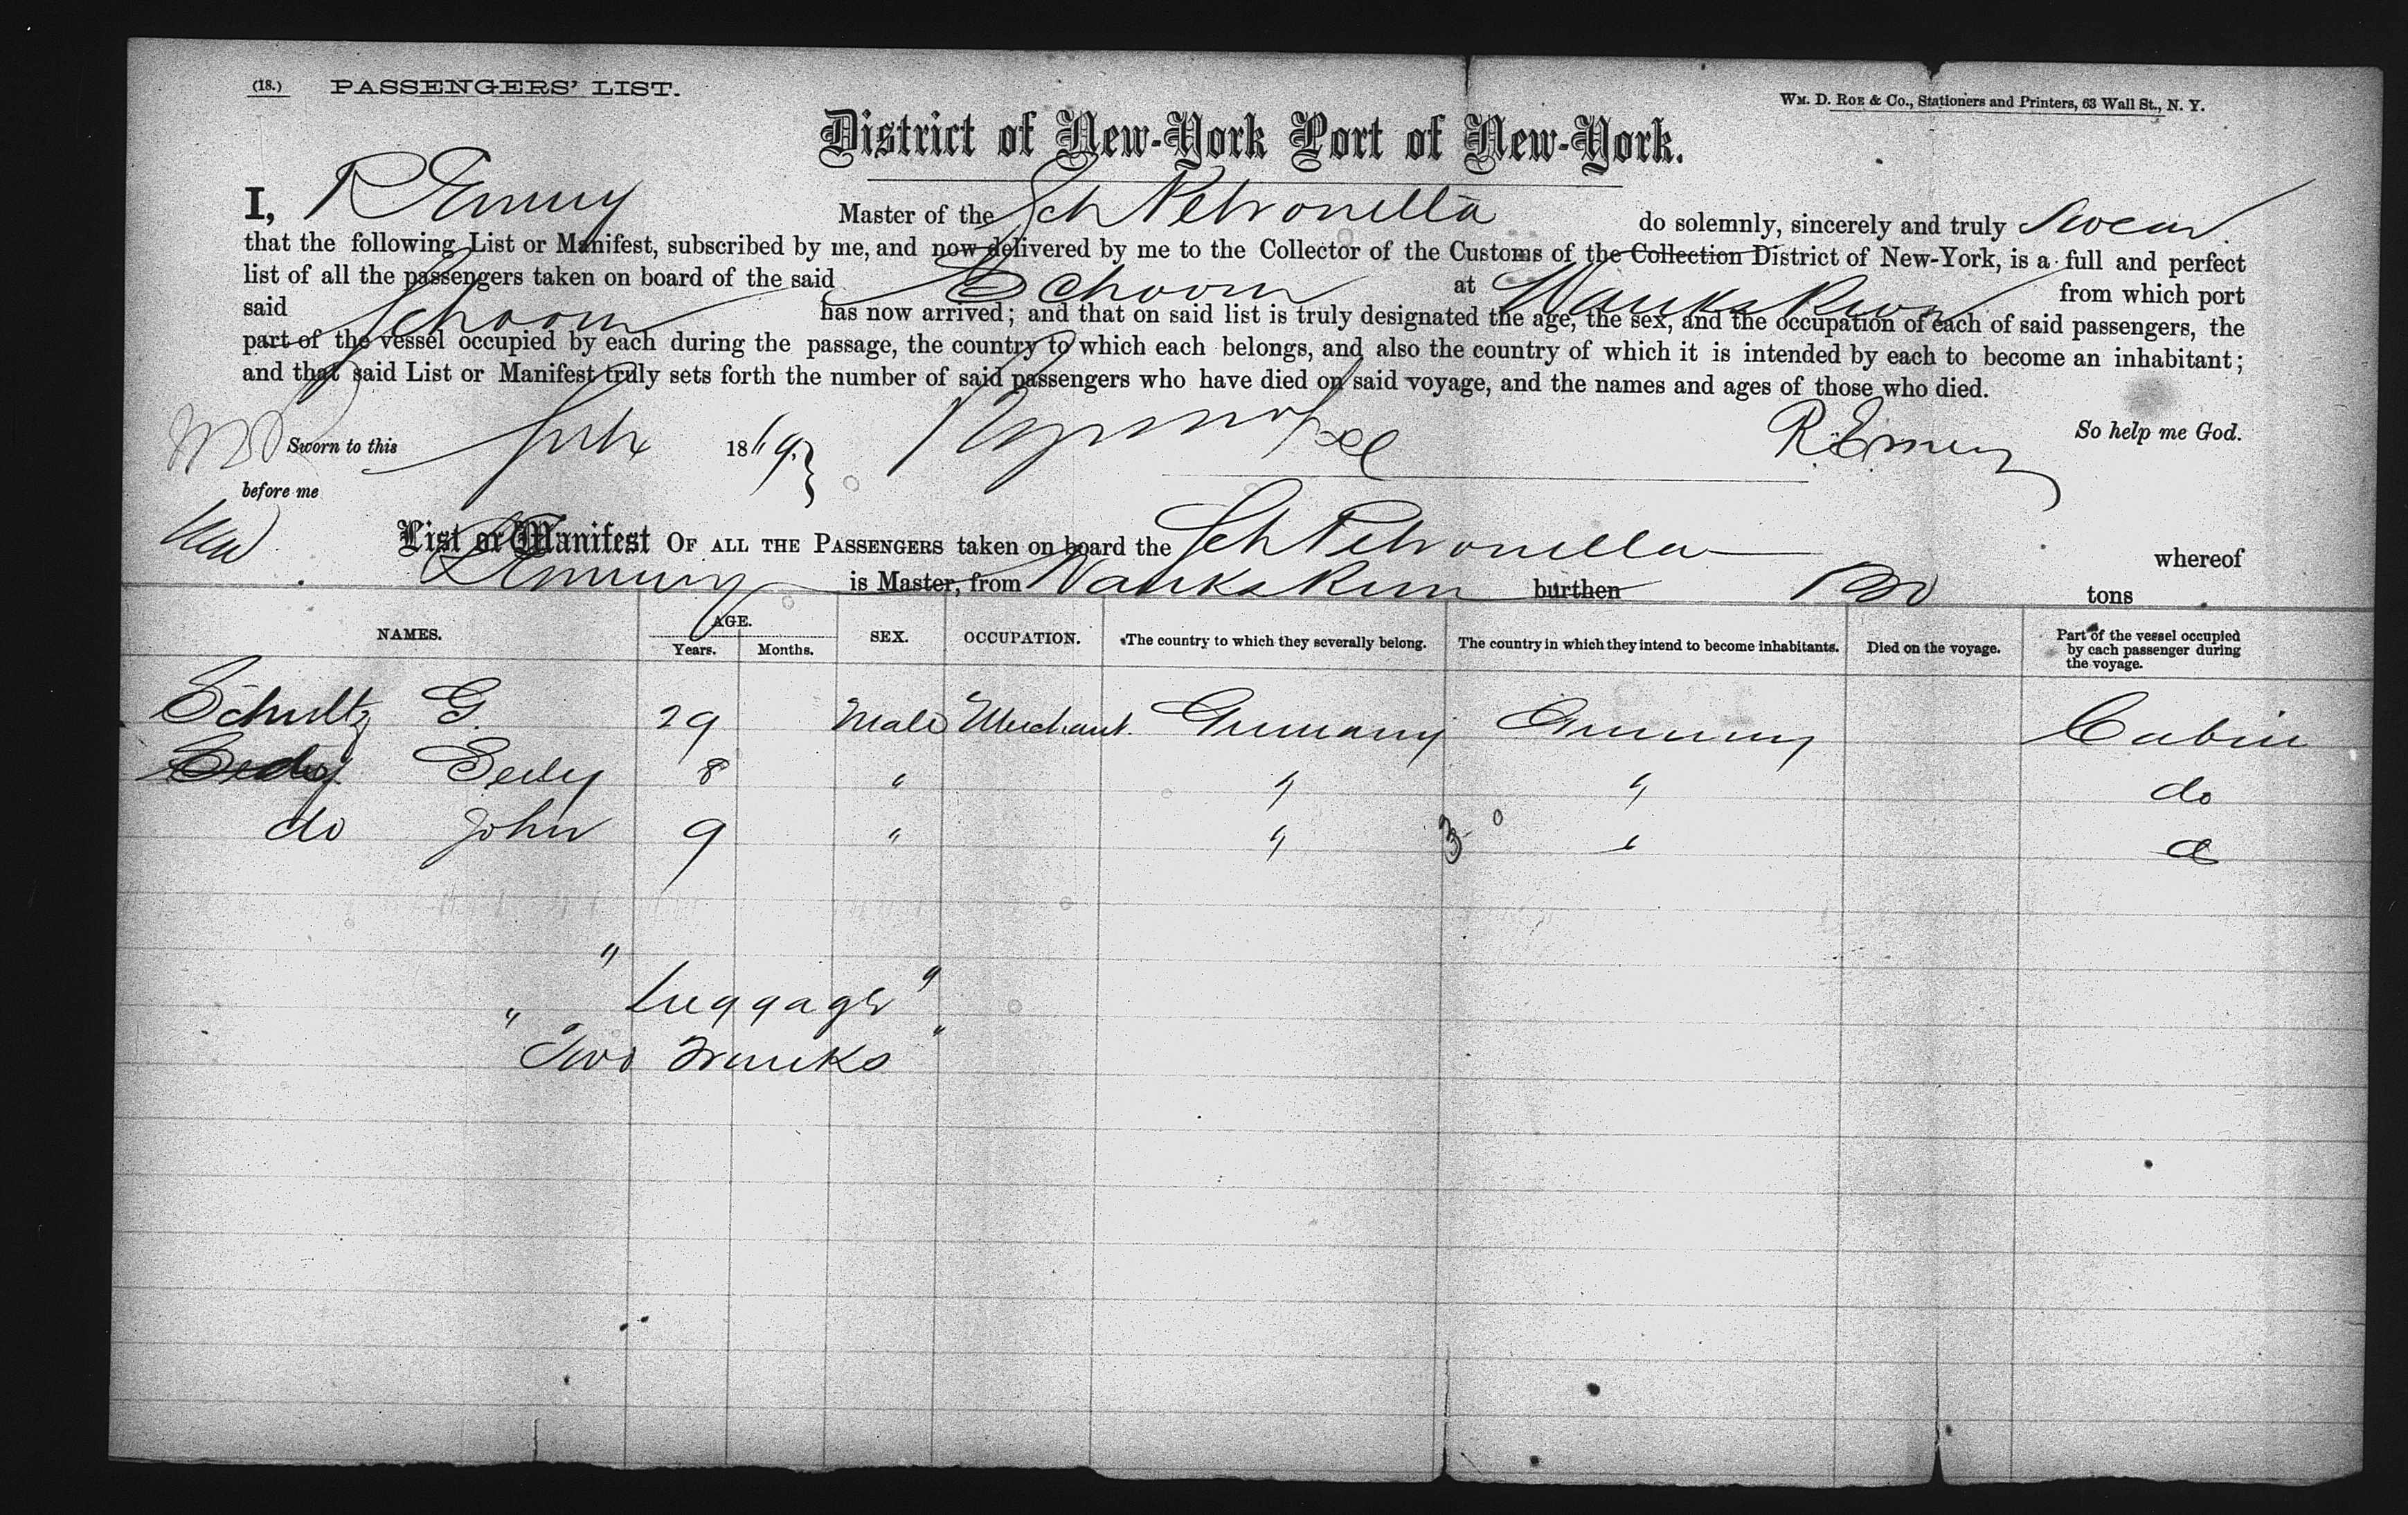 (18.) PASSENGERS' LIST.
WM. D. ROE & Co., Stationers and Printers, 63 Wall St., N. Y.
District of New-York Port of New-York.
I, R Emery Master of the Sch Petronilla do solemnly, sincerely and truly Swear
that the following List or Manifest, subscribed by me, and now delivered by me to the Collector of the Customs of the Collection District of New-York, is a full and perfect
list of all the passengers taken on board of the said Schoon at from which port
said Schoon has now arrived; and that on said list is truly designated the age, the sex, and the occupation of each of said passengers, the
part of the vessel occupied by each during the passage, the country to which each belongs, and also the country of which it is intended by each to become an inhabitant;
and that said List or Manifest truly sets forth the number of said passengers who have died on said voyage, and the names and ages of those who died.
So help me God.
Sworn to this 1869. R. Emery
before me
List or Manifest OF ALL THE PASSENGERS taken on board the Sch Petronilla whereof
R Emery is Master, from burthen tons
NAMES. AGE. Years. Months. SEX. OCCUPATION. The country to which they severally belong. The country in which they intend to become inhabitants. Died on the voyage. Part of the vessel occupied by each passenger during the voyage.
Schultz G. 29 Male Merchant. Germany Germany Cabin
8 " " " do
do John 9 " " 3 " do
"
" Luggage "
" Two Trunks "